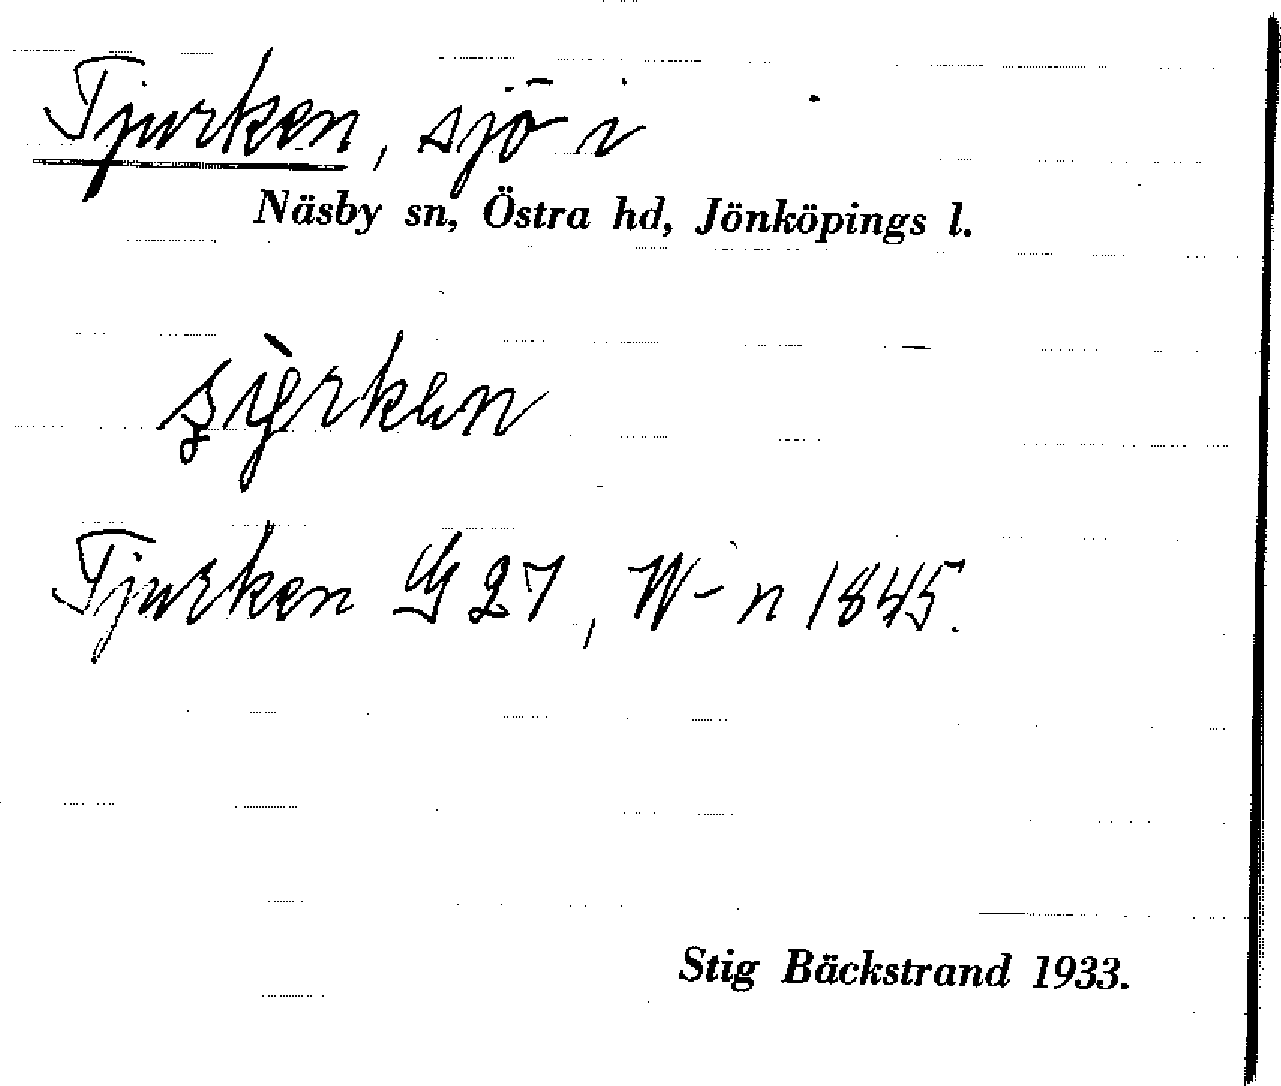 Tjurken, sjö i
Näsby sn, Östra hd, Jönköpings l.
Tjurken G 27, W-n 1845.
Stig Bäckstrand 1933.